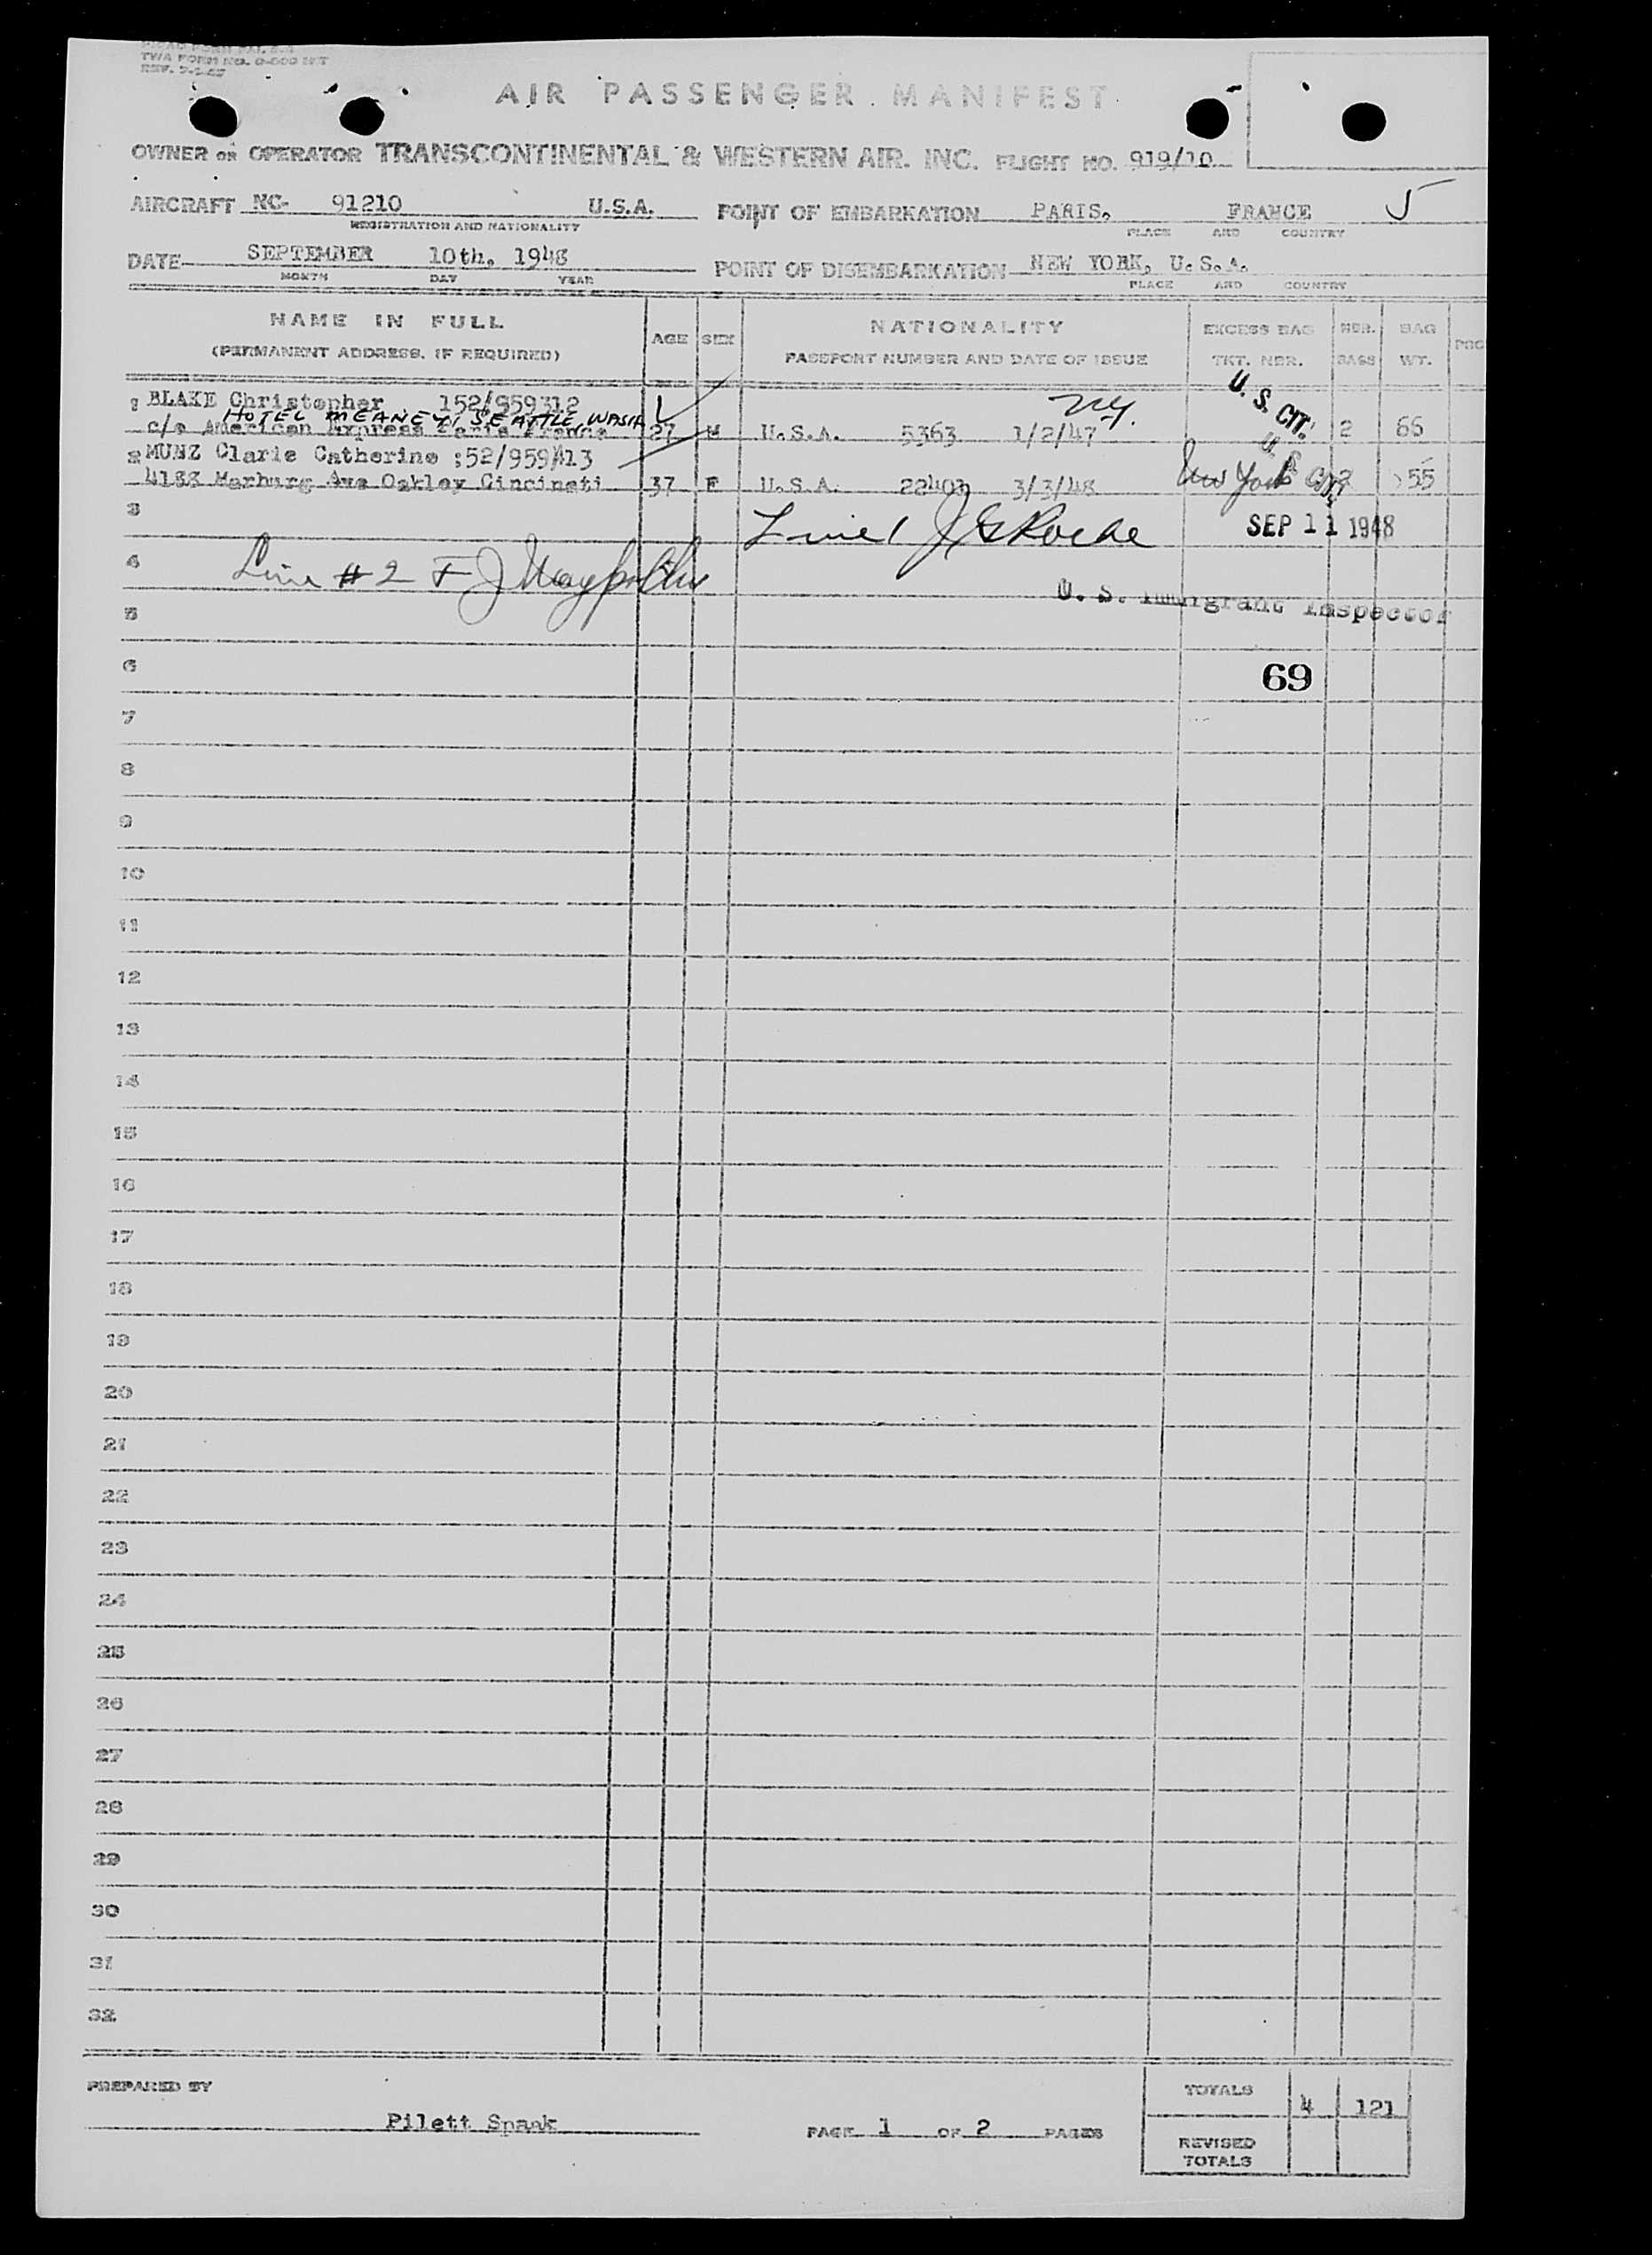 TWA FORM NO. O-500 INT
REV.
AIR PASSENGER MANIFEST
OWNER OR OPERATOR TRANSCONTINENTAL & WESTERN AIR. INC. FLIGHT NO. 919/10
AIRCRAFT NC- 91210 U.S.A. POINT OF EMBARKATION PARIS, FRANCE
REGISTRATION AND NATIONALITY PLACE AND COUNTRY
DATE SEPTEMBER 10th, 1948 POINT OF DISEMBARKATION NEW YORK, U.S.A.
MONTH DAY YEAR PLACE AND COUNTRY
NAME IN FULL AGE SEX NATIONALITY EXCESS BAG NBR. BAG
(PERMANENT ADDRESS, IF REQUIRED) PASSPORT NUMBER AND DATE OF ISSUE TKT. NBR. BAGS WT.
1 BLAKE Christopher 152/959312 NY. U. S. CIT.
HOTEL MEANEY, SEATTLE, WASH
c/o American Express Paris France 27 M U.S.A. 5363 1/2/47 2 66
2 MUNZ Clarie Catherine :52/959413
4188 Marburg Ave Oakley Cincinati 37 F U.S.A. 22403 3/3/48 New York 2 55
3 Line 1 SEP 11 1948
4 Line #2 F J
U. S. Immigrant Inspector
5
6 69
7
8
9
10
11
12
13
14
15
16
17
18
19
20
21
22
23
24
25
26
27
28
29
30
31
32
PREPARED BY TOTALS 4 121
Pilett Spaak PAGE 1 OF 2 PAGES
REVISED
TOTALS